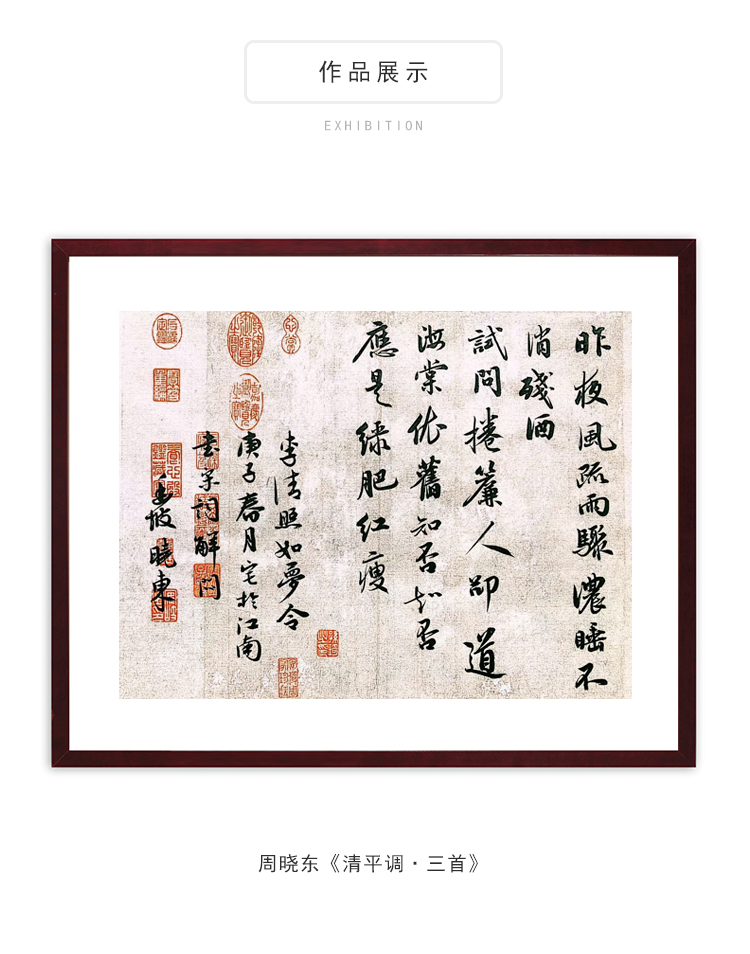 作品展示
EXHIBITION
昨夜風疏雨驟濃睡不
消殘酒
試問捲簾人卻道
海棠依舊知否知否
應是綠肥紅瘦
李清照如夢令
庚子春月宅於江南
書宋詞解悶
曉東
周晓东《清平调·三首》